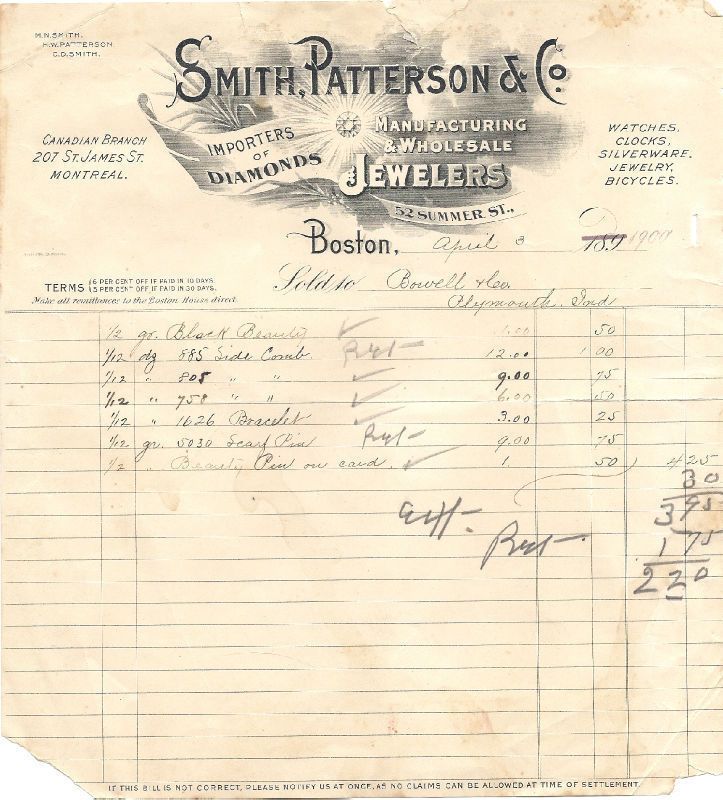 M.N. SMITH.
H.W. PATTERSON.
C.D. SMITH.
SMITH, PATTERSON & Co
CANADIAN BRANCH
207 ST. JAMES ST.
MONTREAL.
IMPORTERS
OF
DIAMONDS
MANUFACTURING
& WHOLESALE
JEWELERS
52 SUMMER ST.,
WATCHES,
CLOCKS,
SILVERWARE,
JEWELRY,
BICYCLES.
Boston, April 3 189 1900
TERMS {6 PER CENT OFF IF PAID IN 10 DAYS.
{5 PER CENT OFF IF PAID IN 30 DAYS.
Make all remittances to the Boston House direct.
Sold to Bowell & Co.
Plymouth, Ind
1/2 gr. Black Beauty ✓ 1.00 50
1/12 dz 885 Side Comb Ret 12.00 1 00
1/12 " 805 " " ✓ 9.00 75
1/12 " 758 " " ✓ 6.00 50
1/12 " 1626 Bracelet ✓ 3.00 25
1/12 gr. 5030 Scarf Pin Ret 9.00 75
1/2 " Beauty Pin on card ✓ 1. 50 4 25
30
3 95
Ret 1 75
2 20
IF THIS BILL IS NOT CORRECT, PLEASE NOTIFY US AT ONCE, AS NO CLAIMS CAN BE ALLOWED AT TIME OF SETTLEMENT.